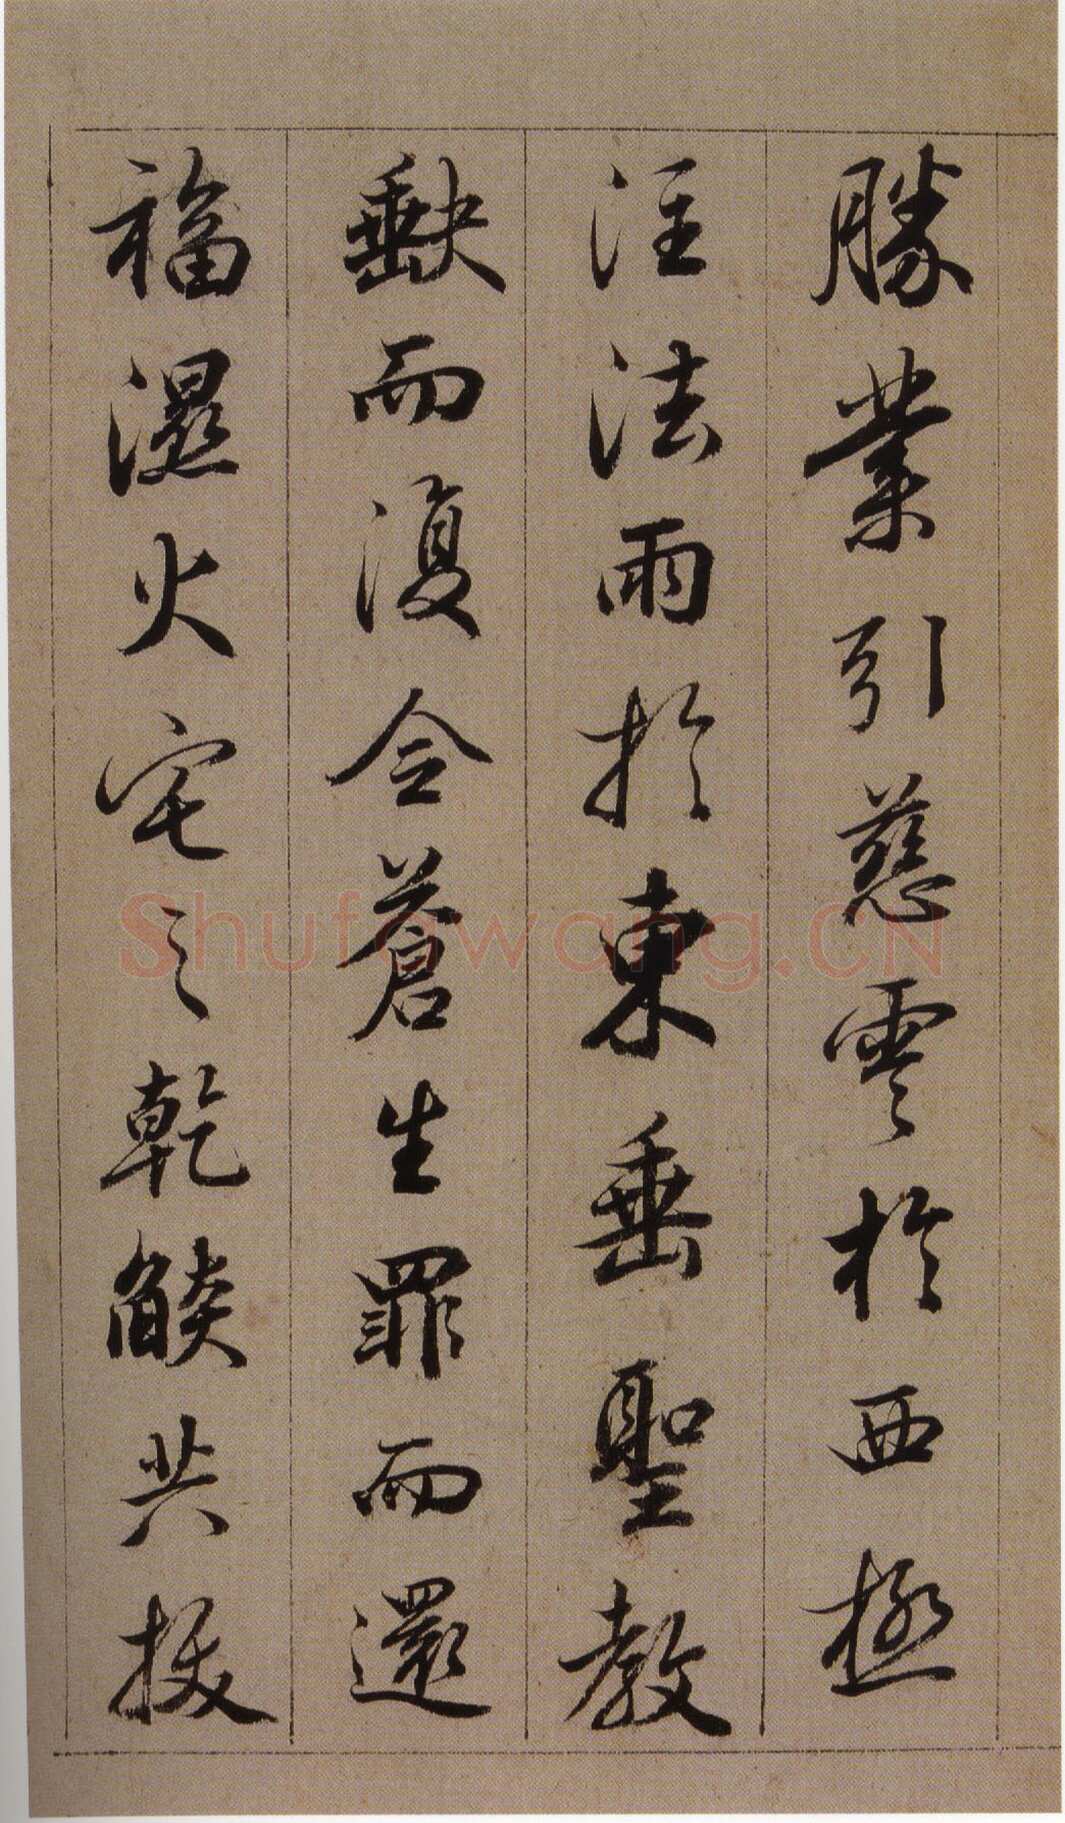 勝業引慈雲於西極
注法雨於東垂聖教
缺而復令蒼生罪而還
福濕火宅之乾燄共拔
Shufawang.CN